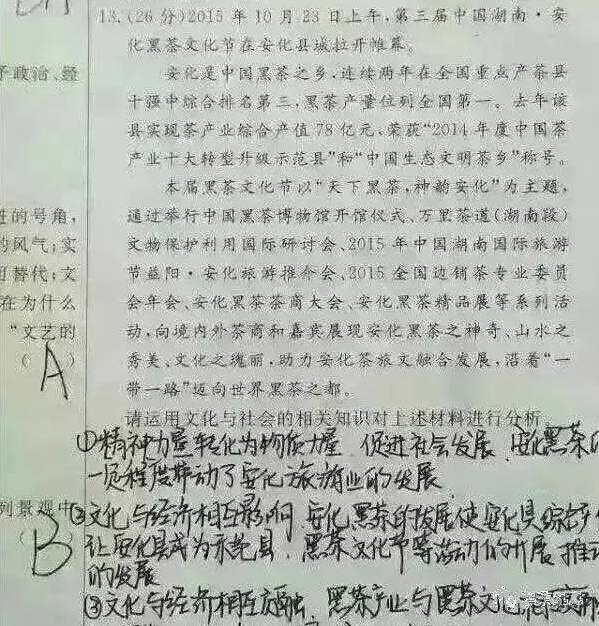 13.(26分)2015年10月23日上午,第三届中国湖南·安
化黑茶文化节在安化县城拉开帷幕。
安化是中国黑茶之乡,连续两年在全国重点产茶县
十强中综合排名第三,黑茶产量位列全国第一。去年该
县实现茶产业综合产值78亿元,荣获“2014年度中国茶
产业十大转型升级示范县”和“中国生态文明茶乡”称号。
本届黑茶文化节以“天下黑茶,神韵安化”为主题,
通过举行中国黑茶博物馆开馆仪式、万里茶道(湖南段)
文物保护利用国际研讨会、2015年中国湖南国际旅游
节益阳·安化旅游推介会、2015全国边销茶专业委员
会年会、安化黑茶茶商大会、安化黑茶精品展等系列活
动,向境内外茶商和嘉宾展现安化黑茶之神奇、山水之
秀美、文化之瑰丽,助力安化茶旅文融合发展,沿着“一
带一路”迈向世界黑茶之都。
请运用文化与社会的相关知识对上述材料进行分析
①精神力量转化为物质力量 促进社会发展.安化黑茶
一定程度带动了安化旅游业的发展
②文化与经济相互影响 安化黑茶的发展使安化县综合
让安化县成为示范县.黑茶文化节等活动的开展 推动
的发展
③文化与经济相互交融 黑茶产业与黑茶文化
政治、经
的号角,
的风气;实
替代;文
在为什么
“文艺的
( A )
列景观中
( B